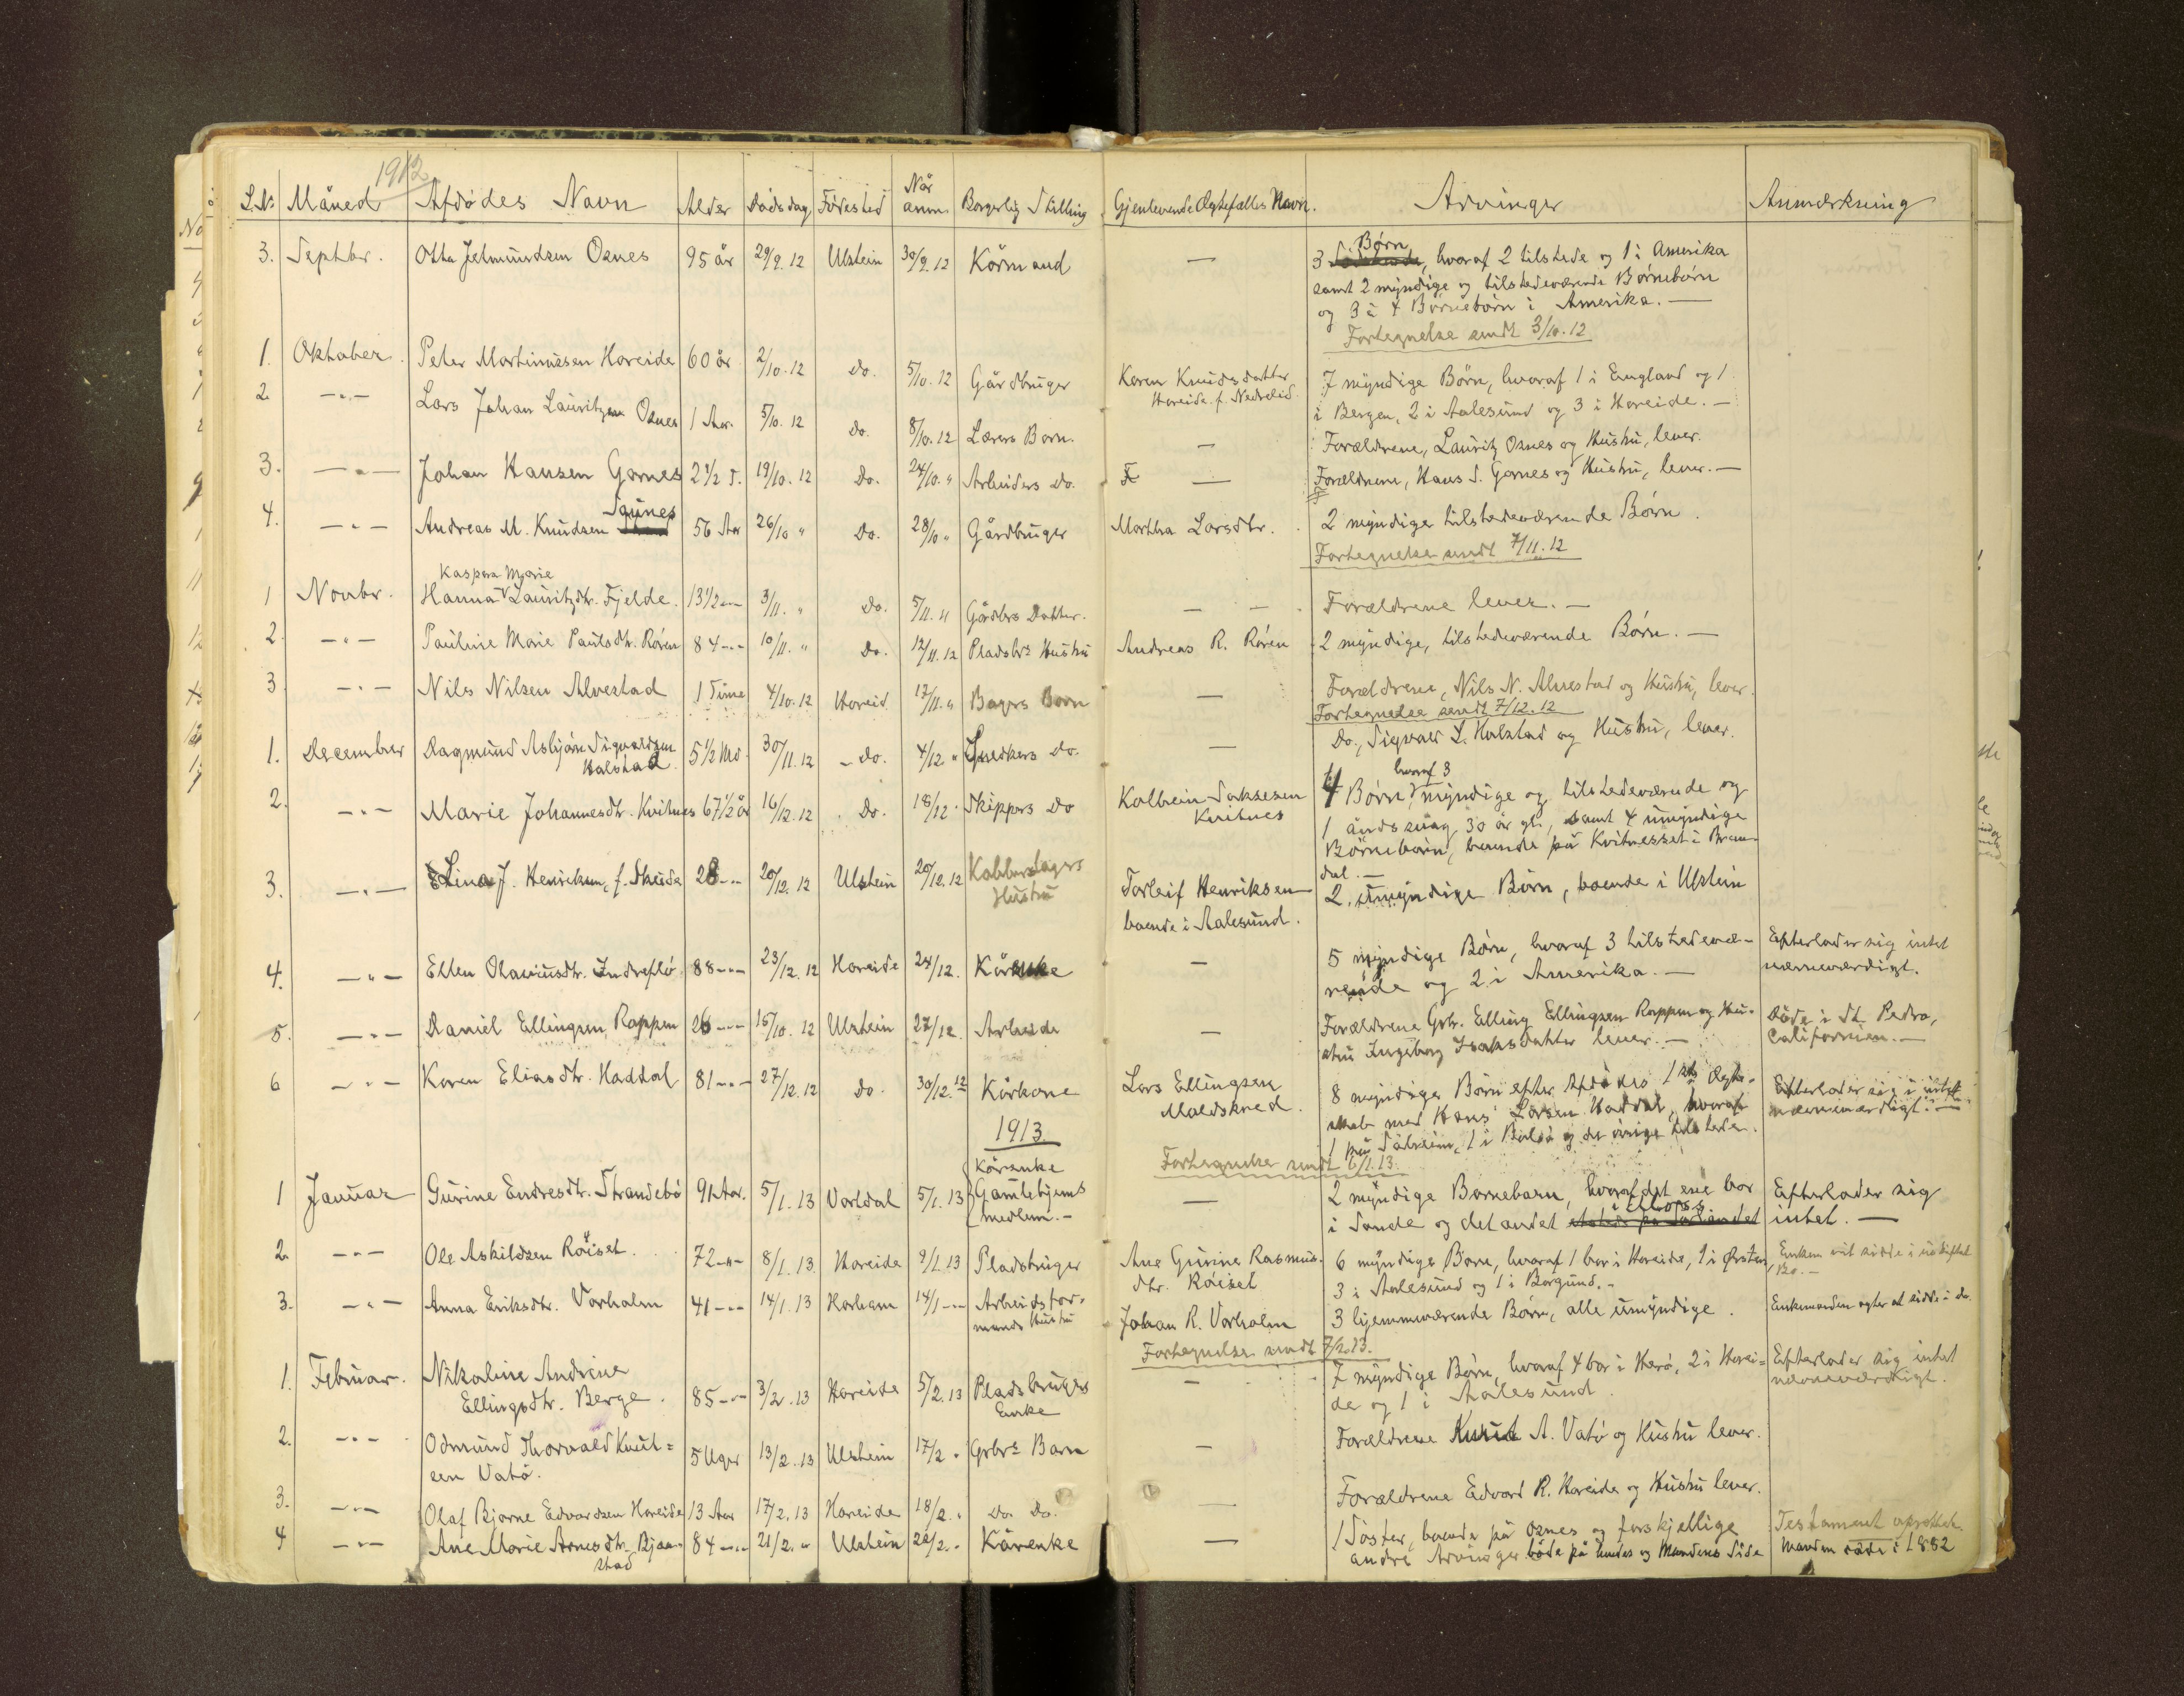 1912
L.No Måned Afdødes Navn Alder Dødsdag Fødested Når anm. Borgerlig Stilling Gjenlevende Ægtefælles Navn. Arvinger Anmærkning
3. Septbr. Otta Jetmundsen Osnes 95 år 29/9.12 Ulstein 30/9.12 Kårmand — 3 Børn, hvoraf 2 tilstede og 1 i Amerika
samt 2 myndige og tilstedeværende Børnebørn
og 3 à 4 Børnebørn i Amerika. —
Fortegnelse sendt 3/10.12
1. Oktober. Peter Martinussen Hareide 60 år 2/10.12 Do. 5/10.12 Gårdbruger Karen Knudsdatter 7 myndige Børn, hvoraf 1 i England og 1
Hareide f. Nedrelid. i Bergen, 2 i Aalesund og 3 i Hareide. —
2. —"— Lars Johan Lauritzen Osnes 1 Aar. 5/10.12 Do. 8/10.12 Lærers Barn. — Forældrene, Lauritz Osnes og Hustru, lever.
3. —"— Johan Hansen Garnes 2 1/2 T. 19/10.12 Do. 24/10." Arbeiders Do. — Forældrene, Hans S. Garnes og Hustru, lever. —
4. —"— Andreas M. Knudsen Saunes 56 Aar 26/10 " Do. 28/10 " Gårdbruger Martha Larsdtr. 2 myndige tilstedeværende Børn.
Fortegnelse sendt 7/11.12
Kaspara Marie
1 Novbr. Hanna Lauritzdtr. Fjelde. 13 1/2 —"— 3/11. " Do. 5/11. " Gårdbrs Datter. — — Forældrene lever. —
2. —"— Pauline Marie Paulsdtr. Røren 84 —"— 10/11. " Do. 12/11.12 Pladsbrs Hustru Andreas R. Røren 2 myndige, tilstedeværende Børn. —
3 —"— Nils Nilsen Alvestad 1 Time 4/10.12 Hareid 17/11. " Bagers Barn — Forældrene, Nils N. Alvestad og Hustru, lever.
Fortegnelse sendt 7/12.12
1. December Dagmund Asbjørn Sigvaldsen 5 1/2 Md. 30/11.12 Do. 4/12. " Snedkers Do. — Do., Sigvald L. Halstad og Hustru, lever.
Halstad.
hvoraf 3
2. —"— Marie Johannesdtr. Kvitnes 67 1/2 år 16/12.12 Do. 18/12. Skippers Do Kolbein Saksesen 4 Børn, myndige og tilstedeværende og
Kvitnes 1 åndssvag 30 år gl., samt 4 umyndige
Børnebørn, boende på Kvitnesset i Bran-
dal. —
3. —"— Lina J. Henriksen, f. Skeide 28 —"— 20/12.12 Ulstein 20/12.12 Kobberslagers Torleif Henriksen 2. umyndige Børn, boende i Ulstein
Hustru boende i Aalesund.
4. —"— Ellen Olaviusdtr. Indreflø. 88 —"— 23/12.12 Hareide 24/12. Kårenke — 5 myndige Børn, hvoraf 3 tilstedevæ- Efterlader sig intet
rende og 2 i Amerika. — nævneværdigt.
5. —"— Daniel Ellingsen Rappen 26 —"— 15/10.12 Ulstein 27/12. Arbeider — Forældrene Grbr. Elling Ellingsen Rappen og Hu- Døde i St. Pedro,
stru Ingeborg Isaksdatter lever. — Californien. —
6 —"— Karen Eliasdtr. Haddal 81 —"— 27/12.12 Do. 30/12.12 Kårkone Lars Ellingsen 8 myndige Børn efter Afdødes 1ste Ægte- Efterlader sig intet
Maldskred. skab med Hans Larsen Haddal, hvoraf nævneværdigt. —
1 i og de øvrige tilstede.
1913
Fortegnelse sendt 6/1.13.
1 Januar Gurine Endresdtr. Strandebø 91 Aar. 5/1.13 Vartdal 5/1.13 Kårenke Gamlehjems medlem. — — 2 myndige Barnebarn, hvoraf det ene bor Efterlader sig
i Sande og det andet intet. —
2. —"— Ole Askildsen Røiset. 72 —"— 8/1.13. Hareide 9/1.13 Pladsbruger Ane Gurine Rasmus- 6 myndige Børn, hvoraf 1 bor i Hareide, 1 i Ørsten, Enken vil sidde i uskiftet
dtr. Røiset 3 i Aalesund og 1 i Borgund. — Bo. —
3. —"— Anna Eriksdtr. Varholm 41 —"— 14/1.13 Harham 14/1 —"— Arbeidsfor- Johan R. Varholm 3 hjemmeværende Børn, alle umyndige. Enkemanden agter at sidde i do.
mands Hustru
Fortegnelse sendt 7/2.13.
1. Februar. Nikoline Andrine 7 myndige Børn, hvoraf 4 bor i Herø, 2 i Harei- Efterlader sig intet
Ellingsdtr. Berge. 85 —"— 3/2.13 Hareide 5/2.13 Pladsbrugers — de og 1 i Aalesund. nævneværdigt.
Enke
2. —"— Odmund Thorvald Knut- 5 Uger 13/2.13 Ulstein 17/2. " Grbrs Barn — Forældrene Knut A. Vatø og Hustru lever.
sen Vatø.
3. —"— Olaf Bjarne Edvardsen Hareide 13 Aar 17/2.13 Hareide 18/2. " Do. Do. — Forældrene Edvard R. Hareide og Hustru lever.
4 —"— Ane Marie Arnesdtr. Bjaa- 84 —"— 21/2. " Ulstein 22/2. " Kårenke — 1 Søster, boende på Osnes og forskjellige Testament oprettet.
stad andre Arvinger både på hendes og Mandens Side Manden døde i 1882